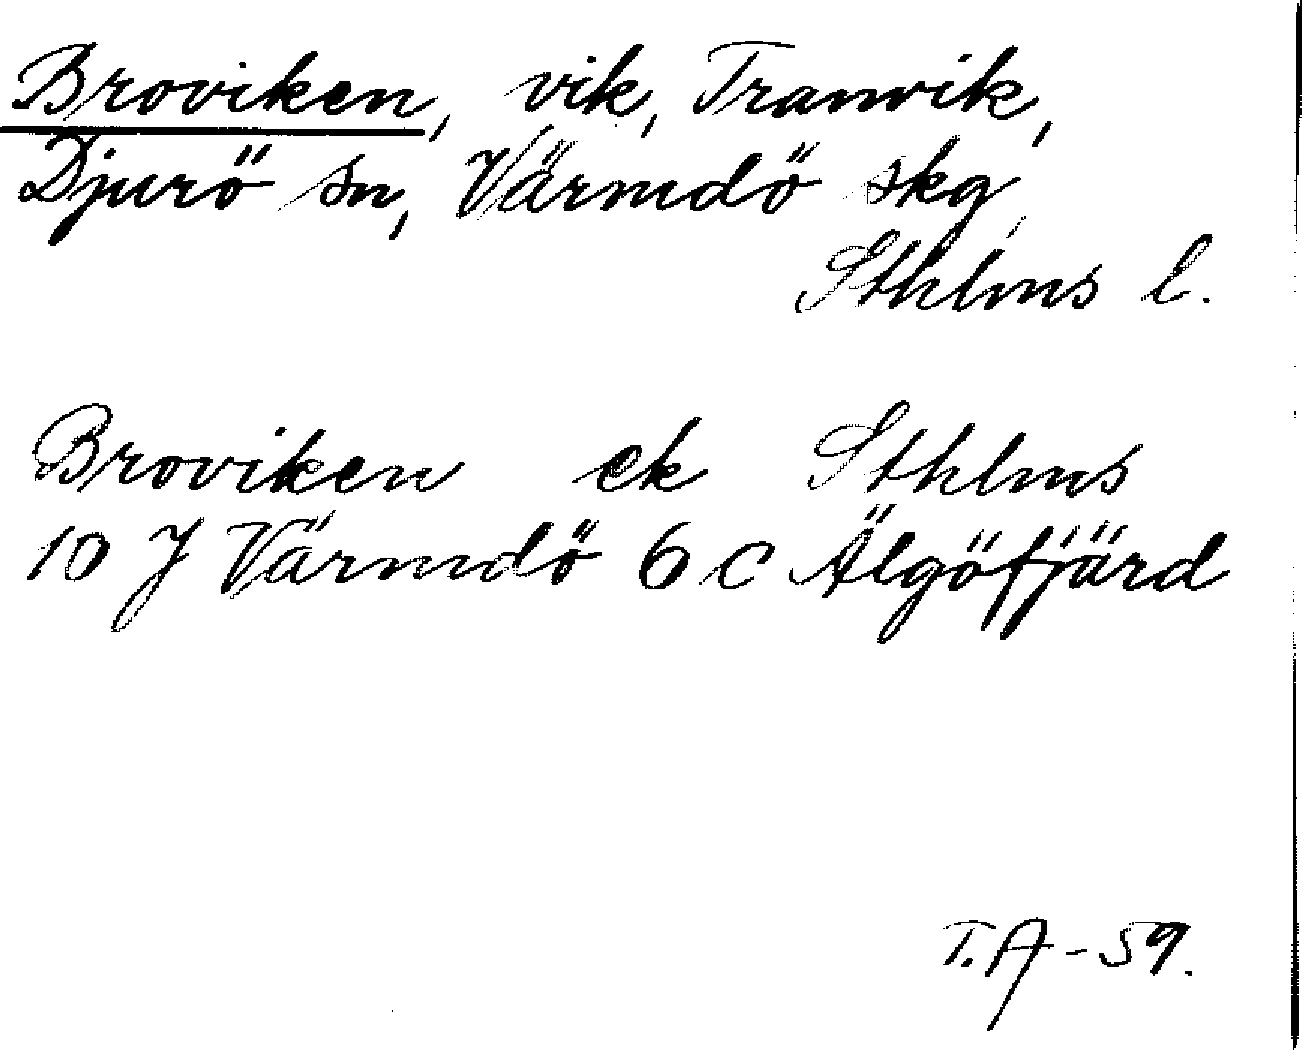 Broviken, vik, Tranvik,
Djurö sn, Värmdö skg,
Sthlms l.
Broviken ek Sthlms
10 J Värmdö 6 C Älgöfjärd
T.A - 59.